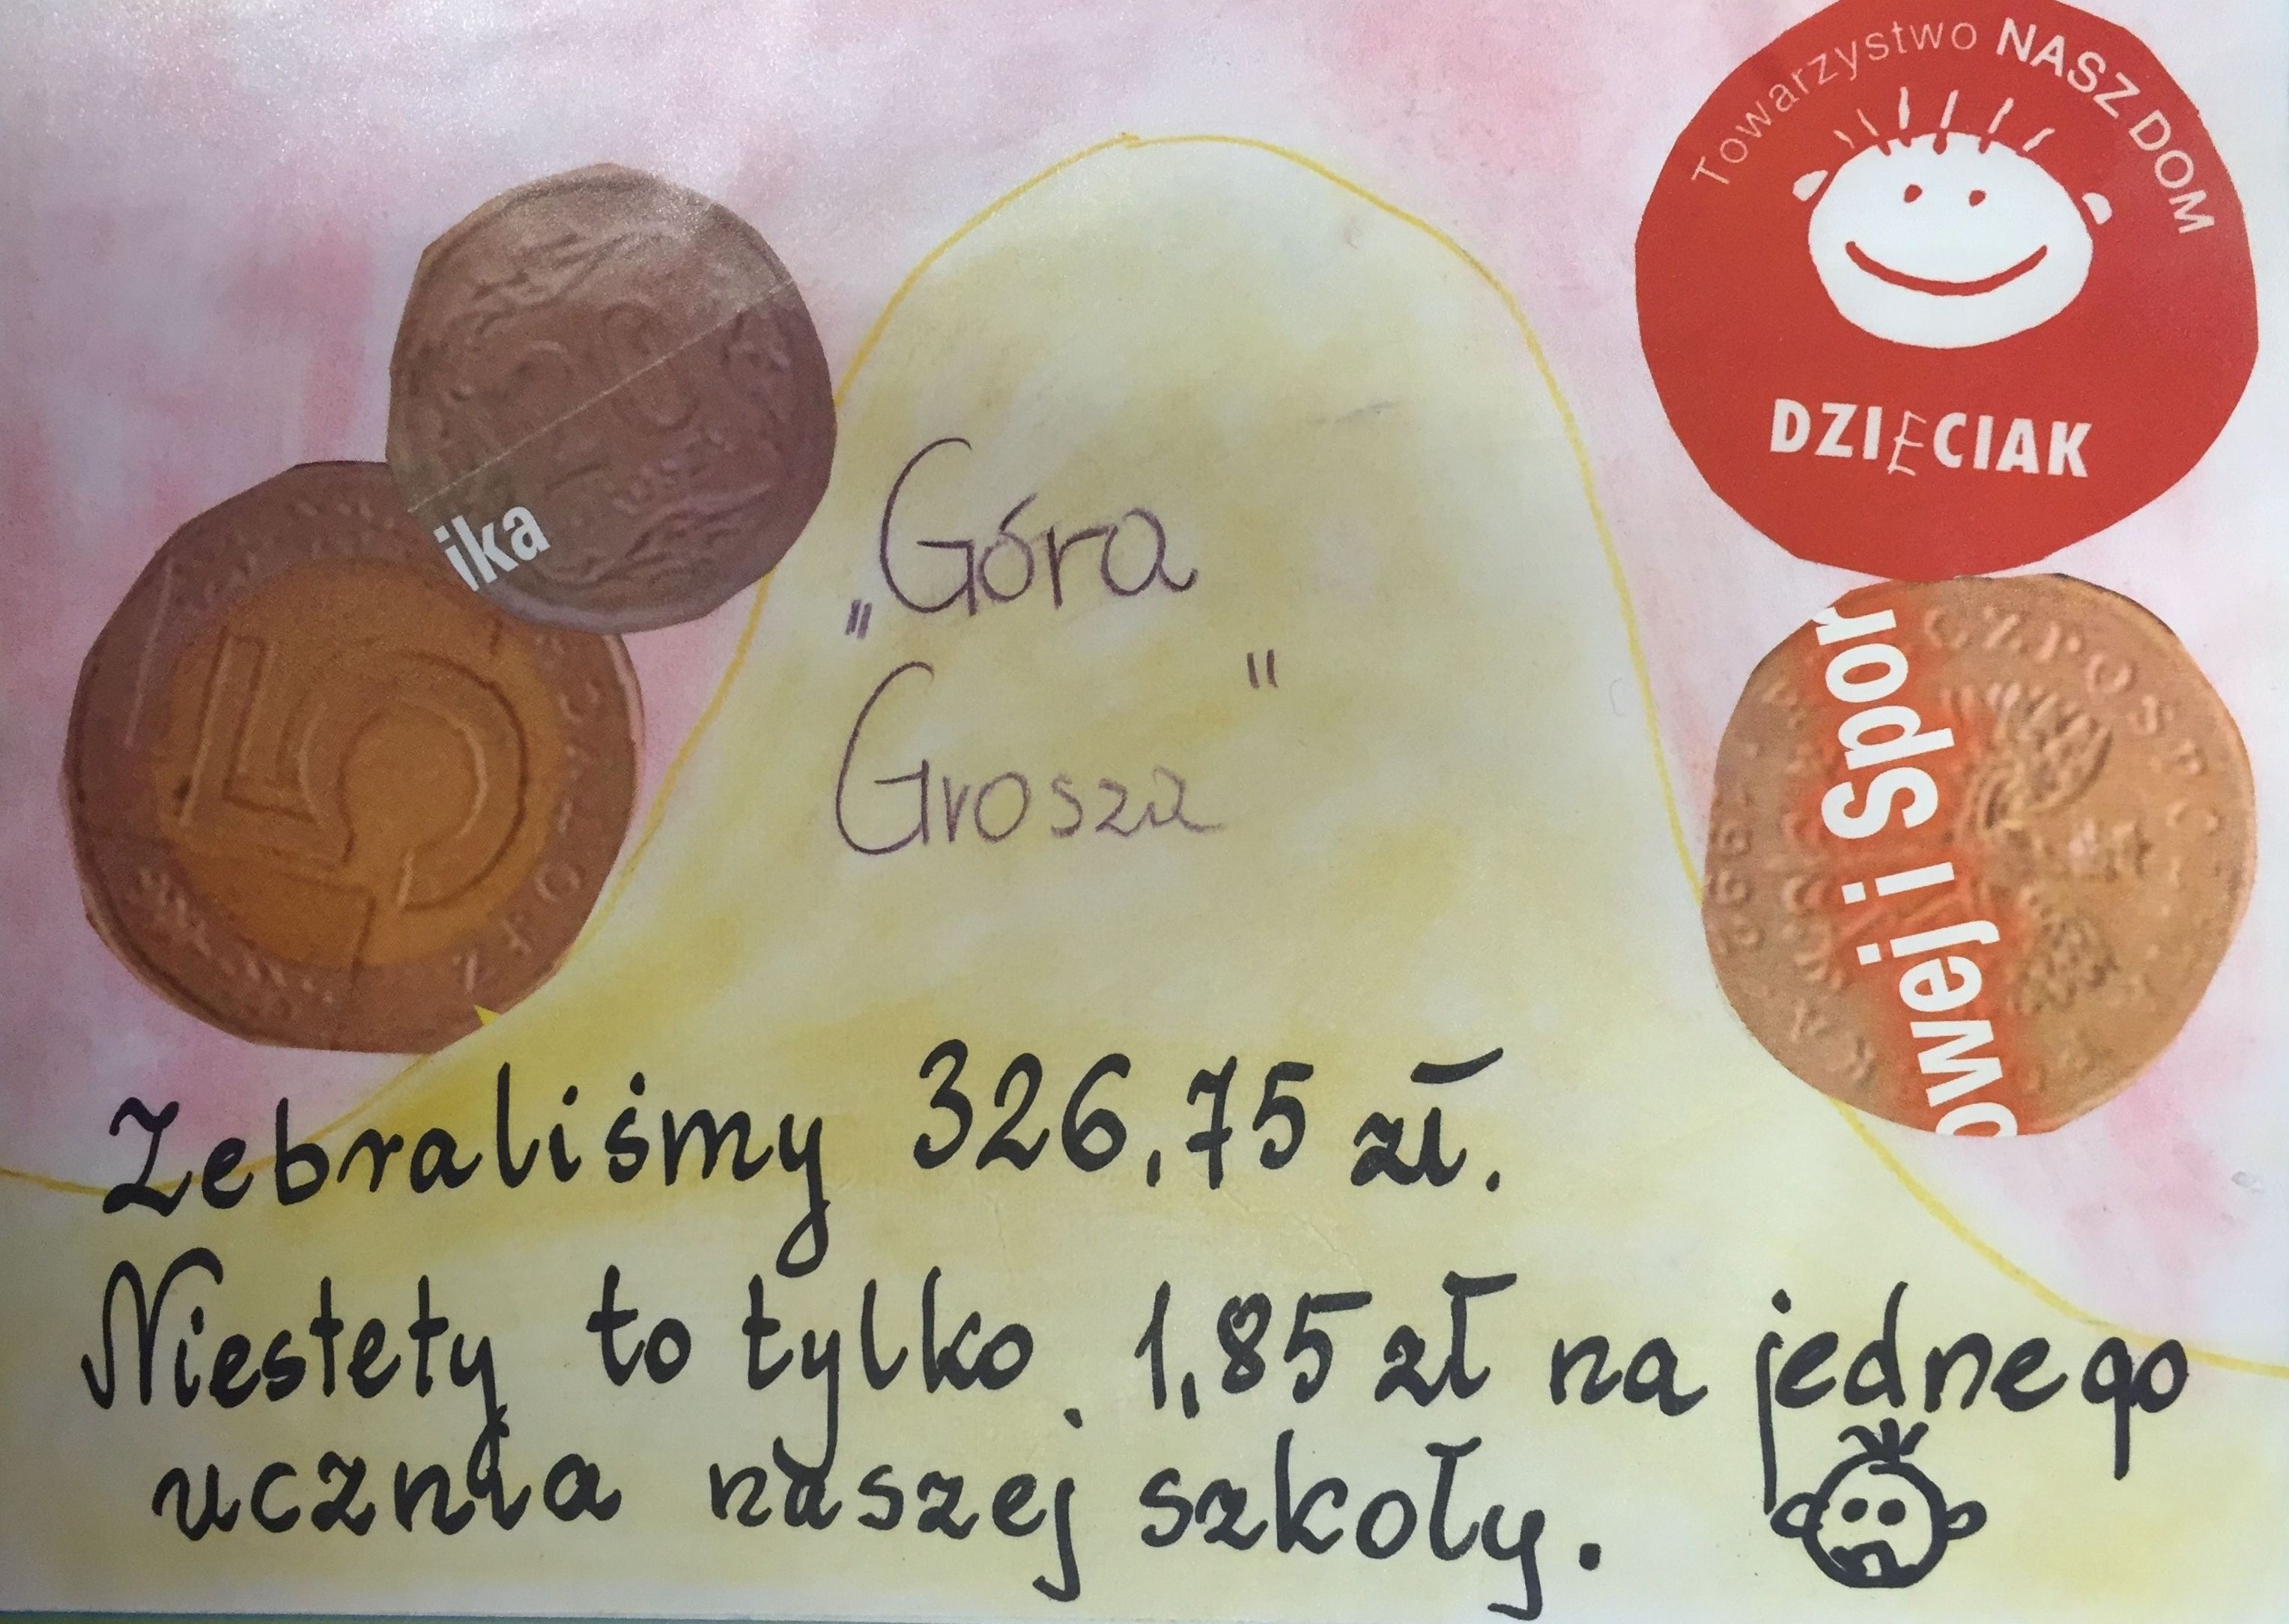 Towarzystwo NASZ DOM
DZIECIAK
ika
5
"Góra
Grosza"
owej i Spor
Zebraliśmy 326,75 zł.
Niestety to tylko 1,85 zł na jednego
ucznia naszej szkoły.